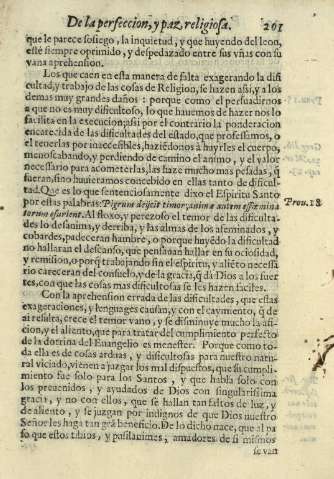 De la perfeccion, y paz, religiosa. 261
que le parece sosiego, la inquietud, y que huyendo del leon,
esté siempre oprimido, y despedazado entre sus vñas con su
vana aprehension.
Los que caen en esta manera de falta exagerando la difi
cultad, y trabajo de las cosas de Religion, se hazen assi, y a los
demas muy grandes daños: porque como el persuadirnos
a que no es muy dificultoso, lo que hauemos de hazer nos lo
facilita en la execucion; assi por el contrario la ponderacion
encarecida de las dificultades del estado, que professamos, o
el tenerlas por inaccesibles, haziédonos à huyrles el cuerpo,
menoscabando, y perdiendo de camino el animo, y el valor
necessario para acometerlas, las haze mucho mas pesadas, q̃
fueran, sino huuieramos concebido en ellas tanto de dificul-
tad. Que es lo que sentenciosamente dixo el Espiritu Santo
por estas palabras: Pigrum deijcit timor, animæ autem effæmina
Prou. 18
torum esurient. Al floxo, y perezoso el temor de las dificulta-
des lo desanima, y derriba, y las almas de los afeminados, y
cobardes, padeceran hambre, o porque huyédo la dificultad
no hallaran el descanso, que pensauan hallar en su ociosidad,
y remision, o porq̃ trabajando sin el espiritu, y aliéto necessa
rio careceran del consuelo, y de la gracia, q̃ dà Dios a los fuer
tes, con que las cosas mas dificultosas se les hazen faciles.
Con la aprehension errada de las dificultades, que estas
exageraciones, y lenguages causan, y con el caymiento, q̃ de
ai resulta, crece el temor vano, y se disminuye mucho la afi-
cion, y el aliento, que para tratar del cumplimiento perfecto
de la dotrina del Euangelio es menester. Porque como to-
da ella es de cosas arduas, y dificultosas para nuestro natu-
ral viciado, vienen a juzgar los mal dispuestos, que su cumpli-
miento fue solo para los Santos, y que habla solo con
los preuenidos, y ayudados de Dios con singularissima
gracia, y no con ellos, que se hallan tan faltos de luz, y
de aliento, y se juzgan por indignos de que Dios nuestro
Señor les haga tan grã beneficio. De lo dicho nace, que al pa
so que estos tibios, y pusilanimes, amadores de si mismos
se van